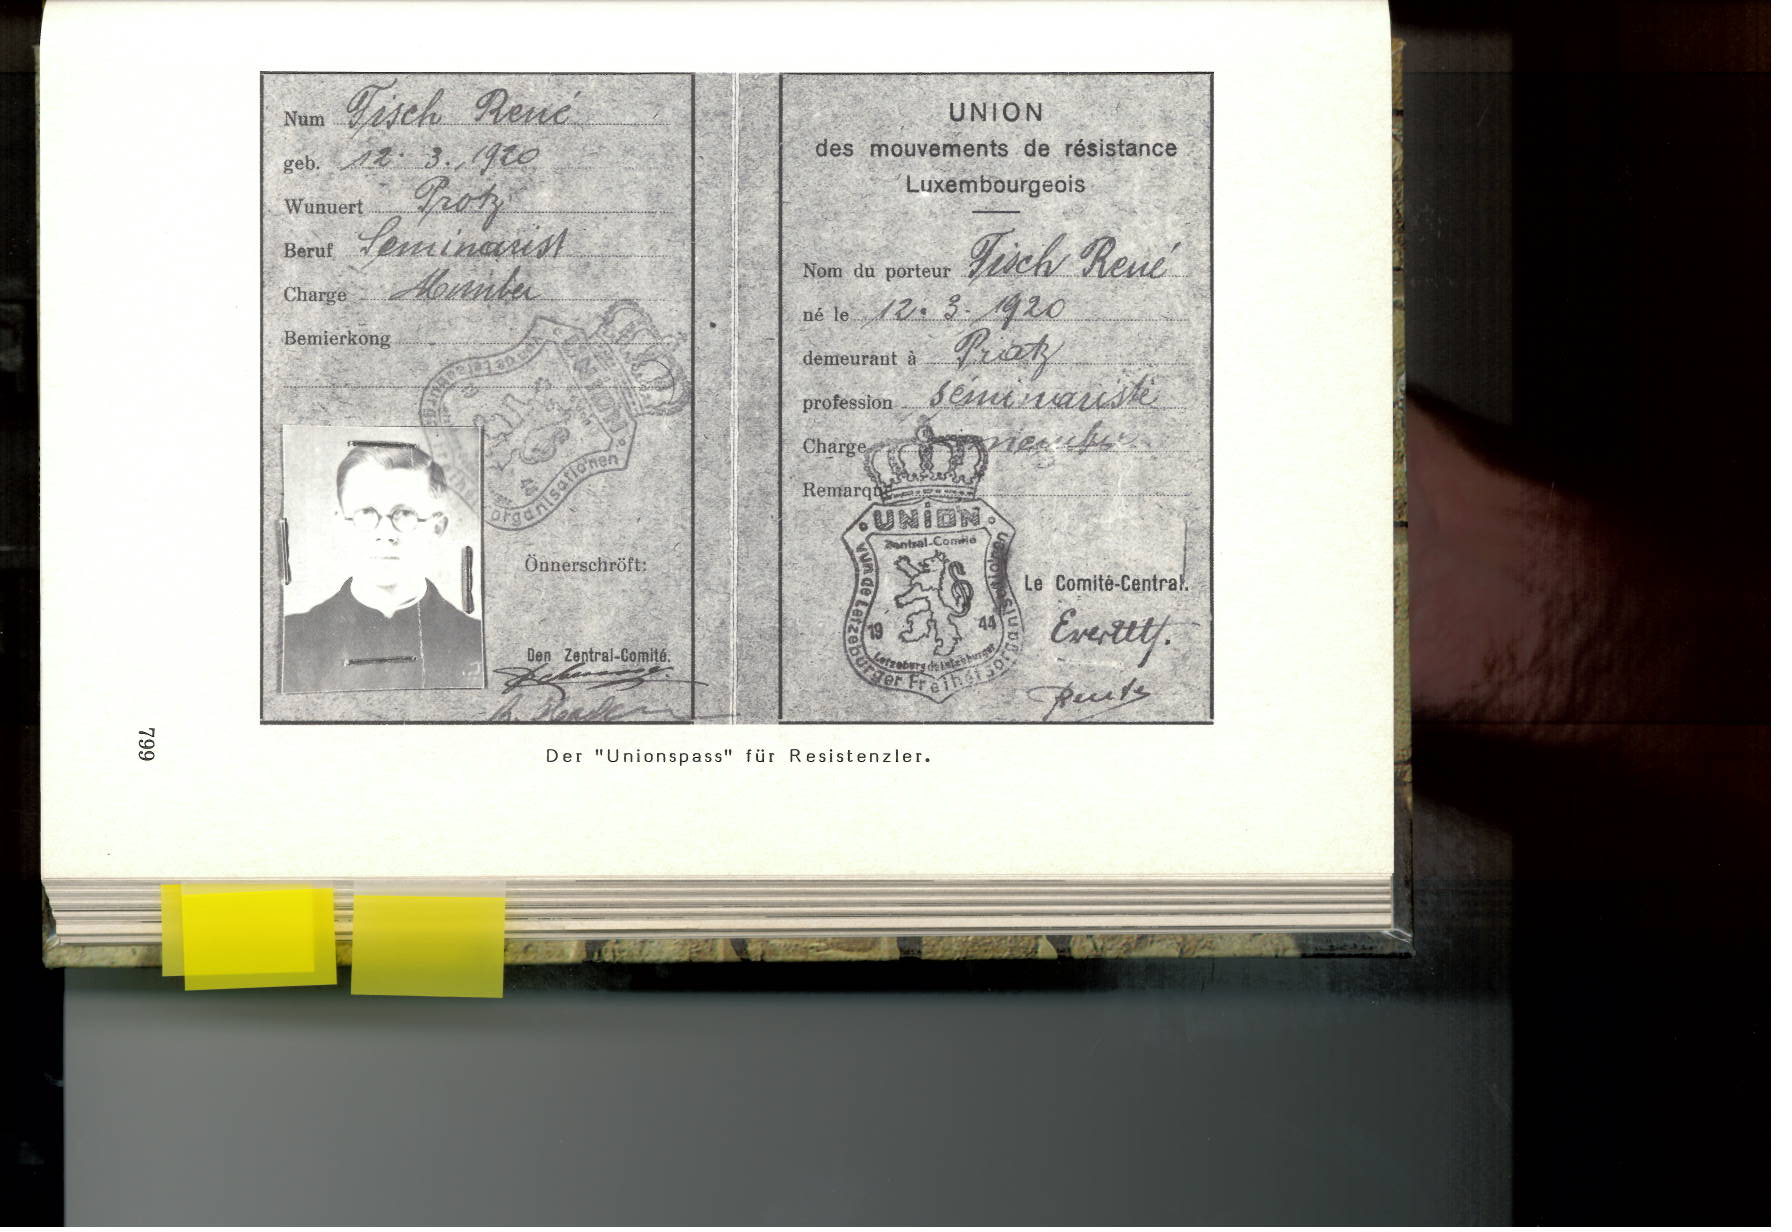 Num Fisch René
geb. 12. 3. 1920
Wunuert Protz
Beruf Seminarist
Charge Member
Bemierkong
UNION
organisationen
Önnerschröft:
Den Zentral-Comité.
UNION
des mouvements de résistance
Luxembourgeois
Nom du porteur Fisch René
né le 12. 3. 1920
demeurant à Pratz
profession séminariste
Charge membre
Remarque
UNION
Zentral-Comité
vun de Letzeburger Freihetsorganisationen
19 44
Letzeburg de Letzeburger
Le Comité-Central.
799
Der "Unionspass" für Resistenzler.